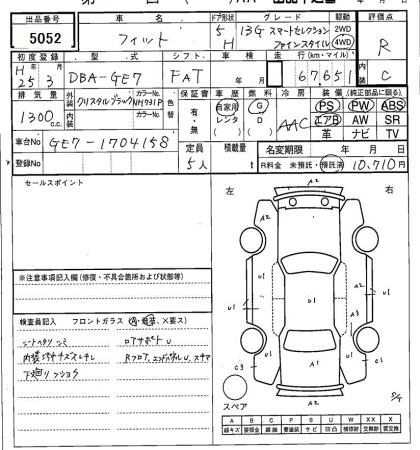 出品番号 車名 ドア形状 グレード 駆動 評価点
5052 フィット 5 H 13G スマートセレクション ファインスタイル 2WD 4WD R
初度登録 型式 シフト 車検 走行(km・マイル) 内装
H 25 年 3 月 DBA-GE7 FAT 年 月 67,651 C
排気量 外装 カラーNo. 色替 保証書 車歴 燃料 冷房 装備 (純正部品に限る)
1300 c.c. クリスタルブラック NH731P 有・無 自家用 レンタ G D AAC PS PW ABS
内装 カラーNo. エアB AW SR
革 ナビ TV
車台No GE7-1704158 定員 積載量 名変期限 年 月 日
登録No 5人 t R料金 未預託・預託済 10,710円
セールスポイント
左 右
A2
A2
U1 U1 U1 U1
A3
U1
C3 C1
A2 A1
スペア
※注意事項記入欄(修復・不具合箇所および状態等)
検査員記入 フロントガラス
シートヘタリ シミ ロアサポートU
下廻り フショク
A B C P S U W X XX
線キズ 要補修 腐食 要塗装 サビ 凹凸 補修跡 要交換 交換済